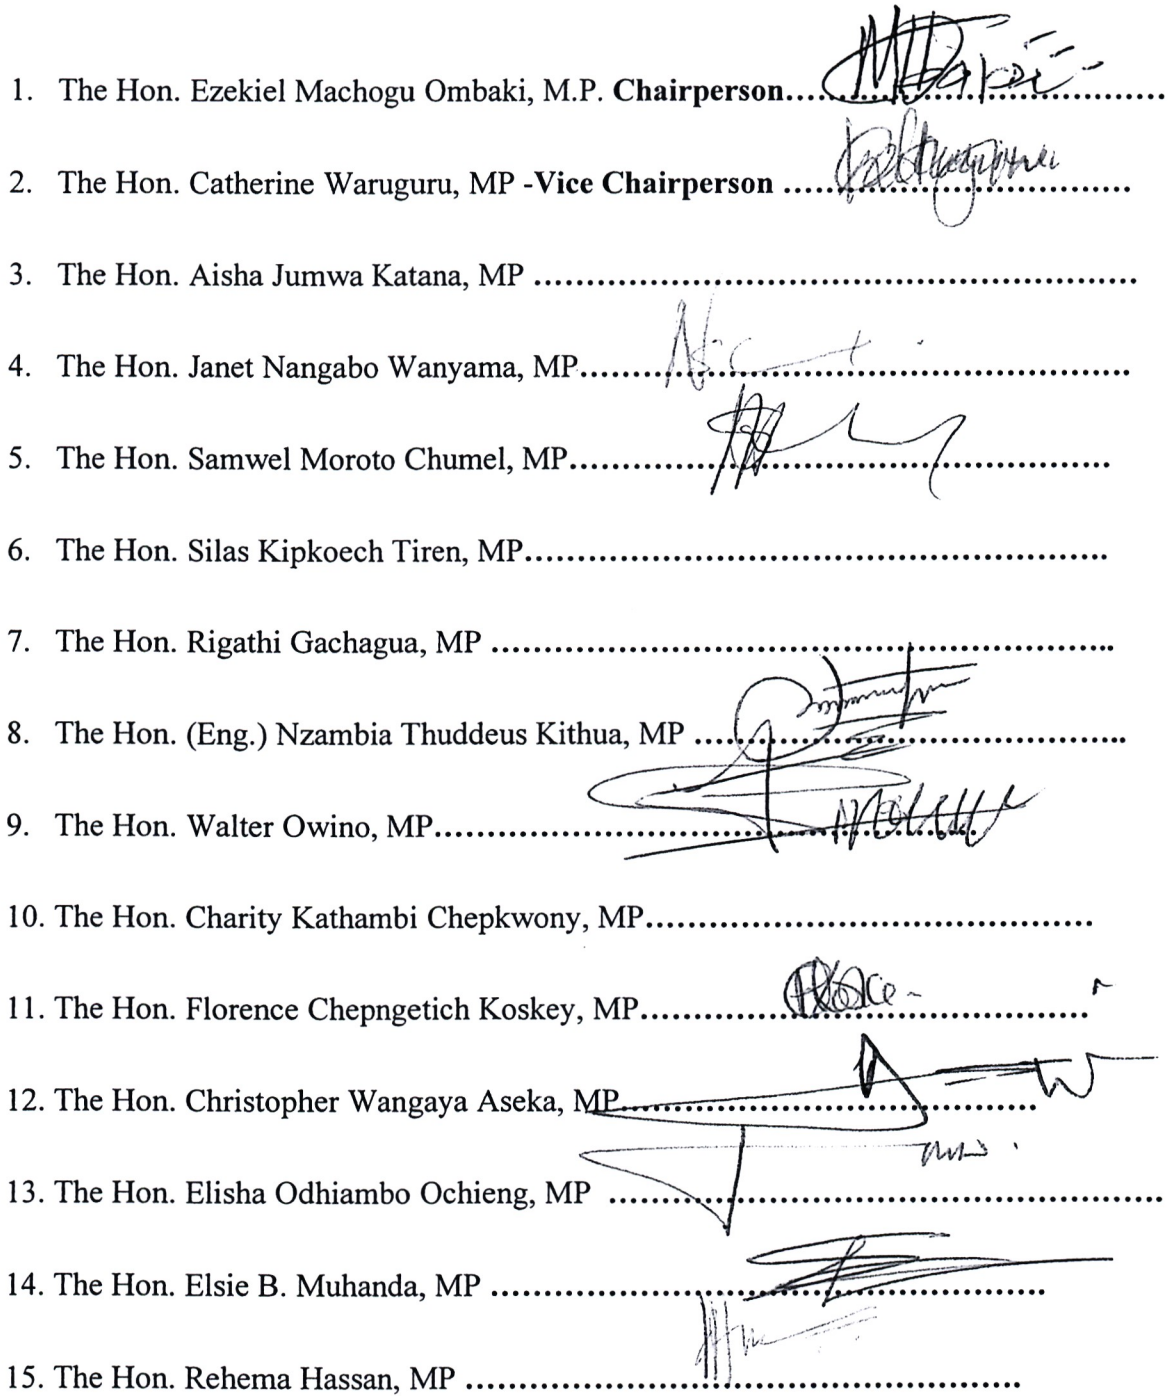 1. The Hon. Ezekiel Machogu Ombaki, M.P. Chairperson
2. The Hon. Catherine Waruguru, MP -Vice Chairperson
3. The Hon. Aisha Jumwa Katana, MP
4. The Hon. Janet Nangabo Wanyama, MP
5. The Hon. Samwel Moroto Chumel, MP
6. The Hon. Silas Kipkoech Tiren, MP
7. The Hon. Rigathi Gachagua, MP
8. The Hon. (Eng.) Nzambia Thuddeus Kithua, MP
9. The Hon. Walter Owino, MP
10. The Hon. Charity Kathambi Chepkwony, MP
11. The Hon. Florence Chepngetich Koskey, MP
12. The Hon. Christopher Wangaya Aseka, MP
13. The Hon. Elisha Odhiambo Ochieng, MP
14. The Hon. Elsie B. Muhanda, MP
15. The Hon. Rehema Hassan, MP